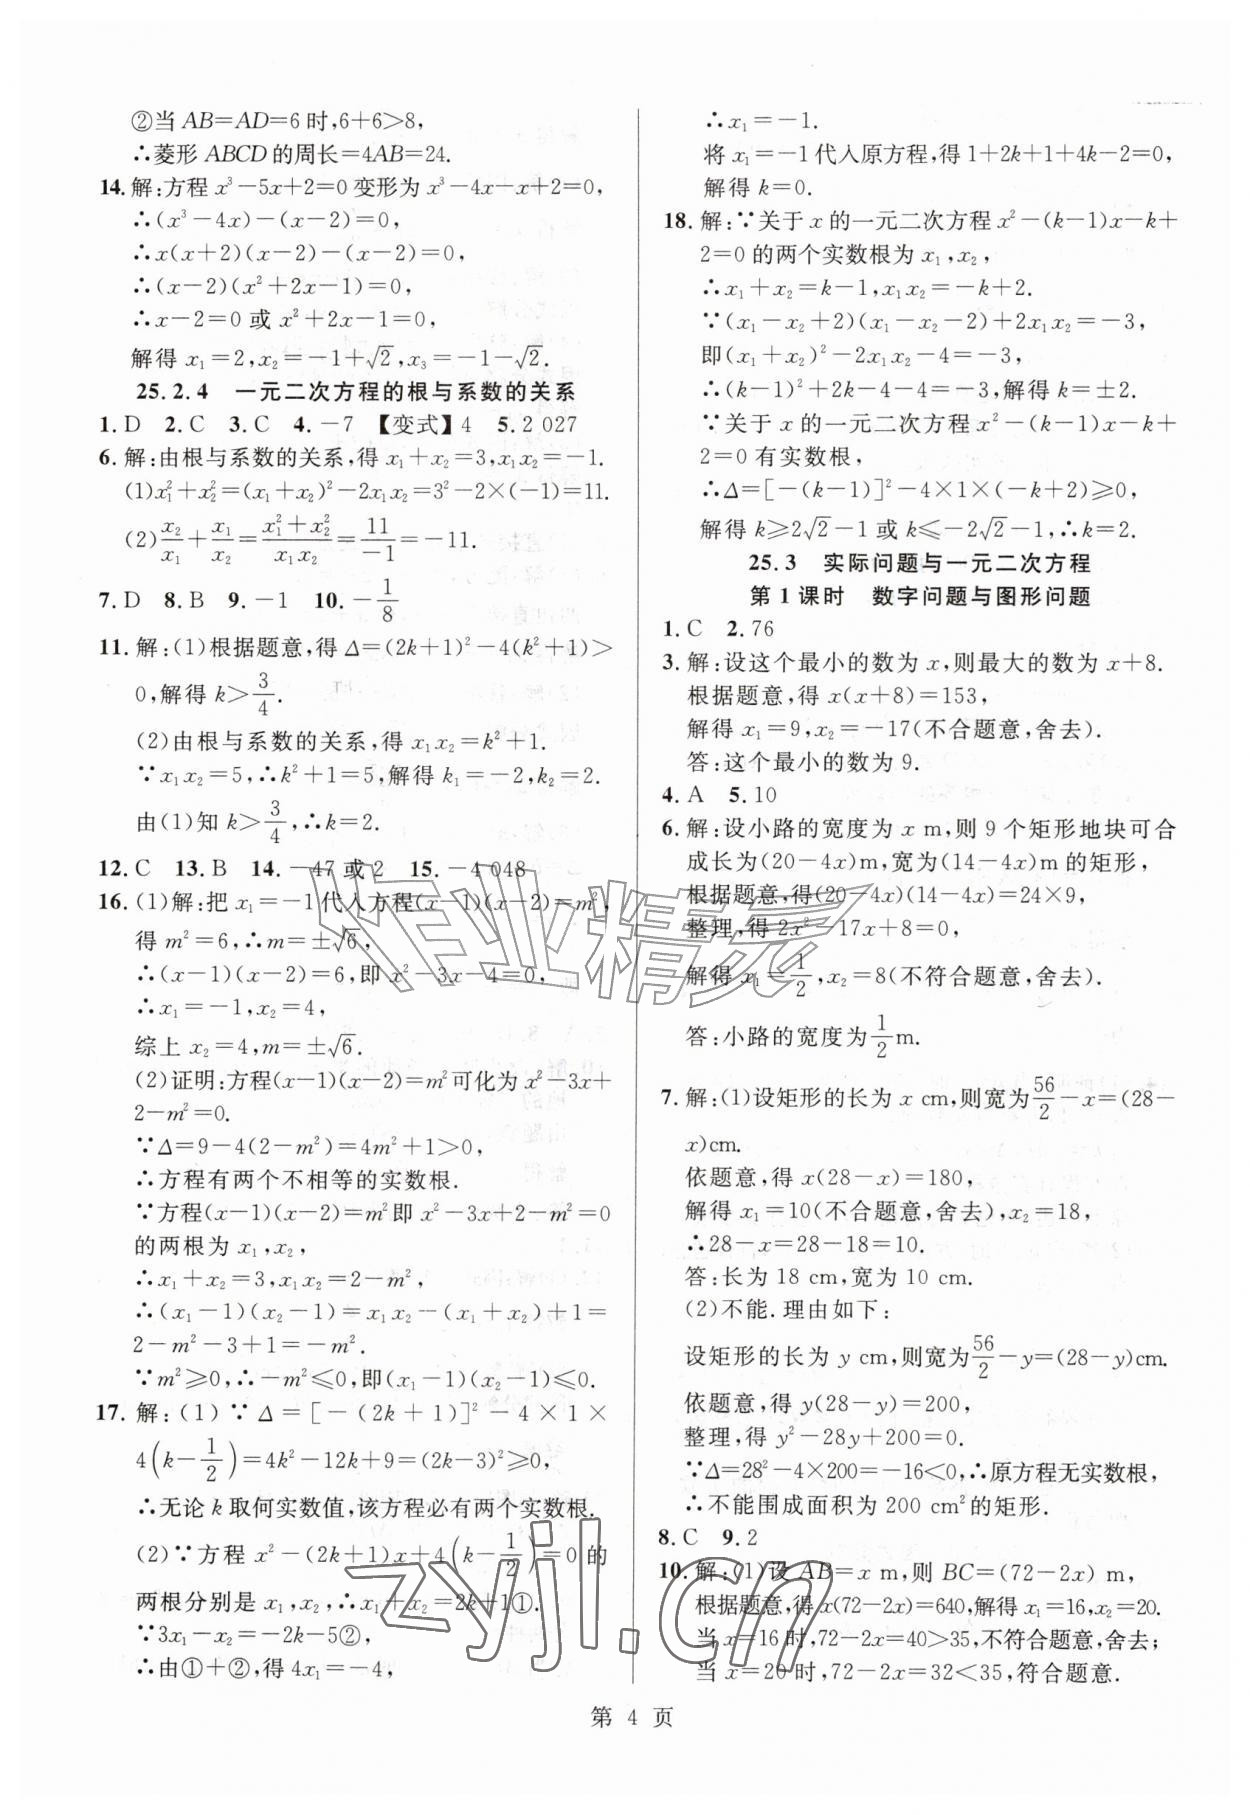 ②当 AB=AD=6 时,6+6>8,
∴菱形 ABCD 的周长=4AB=24.
14. 解:方程 x³-5x+2=0 变形为 x³-4x-x+2=0,
∴(x³-4x)-(x-2)=0,
∴x(x+2)(x-2)-(x-2)=0,
∴(x-2)(x²+2x-1)=0,
∴x-2=0 或 x²+2x-1=0,
解得 x₁=2,x₂=-1+√2,x₃=-1-√2.
25.2.4 一元二次方程的根与系数的关系
1. D 2. C 3. C 4. -7 【变式】4 5. 2 027
6. 解:由根与系数的关系,得 x₁+x₂=3,x₁x₂=-1.
(1)x₁²+x₂²=(x₁+x₂)²-2x₁x₂=3²-2×(-1)=11.
(2)x₂/x₁+x₁/x₂=(x₁²+x₂²)/(x₁x₂)=11/(-1)=-11.
7. D 8. B 9. -1 10. -1/8
11. 解:(1)根据题意,得 Δ=(2k+1)²-4(k²+1)>
0,解得 k>3/4.
(2)由根与系数的关系,得 x₁x₂=k²+1.
∵x₁x₂=5,∴k²+1=5,解得 k₁=-2,k₂=2.
由(1)知 k>3/4,∴k=2.
12. C 13. B 14. -47 或 2 15. -4 048
16. (1)解:把 x₁=-1 代入方程(x-1)(x-2)=m²,
得 m²=6,∴m=±√6,
∴(x-1)(x-2)=6,即 x²-3x-4=0,
∴x₁=-1,x₂=4,
综上 x₂=4,m=±√6.
(2)证明:方程(x-1)(x-2)=m²可化为 x²-3x+
2-m²=0.
∵Δ=9-4(2-m²)=4m²+1>0,
∴方程有两个不相等的实数根.
∵方程(x-1)(x-2)=m²即 x²-3x+2-m²=0
的两根为 x₁,x₂,
∴x₁+x₂=3,x₁x₂=2-m²,
∴(x₁-1)(x₂-1)=x₁x₂-(x₁+x₂)+1=
2-m²-3+1=-m².
∵m²≥0,∴-m²≤0,即(x₁-1)(x₂-1)≤0.
17. 解:(1)∵Δ=[-(2k+1)]²-4×1×
4(k-1/2)=4k²-12k+9=(2k-3)²≥0,
∴无论 k 取何实数值,该方程必有两个实数根.
(2)∵方程 x²-(2k+1)x+4(k-1/2)=0 的
两根分别是 x₁,x₂,∴x₁+x₂=2k+1①.
∵3x₁-x₂=-2k-5②,
∴由①+②,得 4x₁=-4,
∴x₁=-1.
将 x₁=-1 代入原方程,得 1+2k+1+4k-2=0,
解得 k=0.
18. 解:∵关于 x 的一元二次方程 x²-(k-1)x-k+
2=0 的两个实数根为 x₁,x₂,
∴x₁+x₂=k-1,x₁x₂=-k+2.
∵(x₁-x₂+2)(x₁-x₂-2)+2x₁x₂=-3,
即(x₁+x₂)²-2x₁x₂-4=-3,
∴(k-1)²+2k-4-4=-3,解得 k=±2.
∵关于 x 的一元二次方程 x²-(k-1)x-k+
2=0 有实数根,
∴Δ=[-(k-1)]²-4×1×(-k+2)≥0,
解得 k≥2√2-1 或 k≤-2√2-1,∴k=2.
25.3 实际问题与一元二次方程
第 1 课时 数字问题与图形问题
1. C 2. 76
3. 解:设这个最小的数为 x,则最大的数为 x+8.
根据题意,得 x(x+8)=153,
解得 x₁=9,x₂=-17(不合题意,舍去).
答:这个最小的数为 9.
4. A 5. 10
6. 解:设小路的宽度为 x m,则 9 个矩形地块可合
成长为(20-4x)m,宽为(14-4x)m 的矩形,
根据题意,得(20-4x)(14-4x)=24×9,
整理,得 2x²-17x+8=0,
解得 x₁=1/2,x₂=8(不符合题意,舍去).
答:小路的宽度为1/2m.
7. 解:(1)设矩形的长为 x cm,则宽为56/2-x=(28-
x)cm.
依题意,得 x(28-x)=180,
解得 x₁=10(不合题意,舍去),x₂=18,
∴28-x=28-18=10.
答:长为 18 cm,宽为 10 cm.
(2)不能.理由如下:
设矩形的长为 y cm,则宽为56/2-y=(28-y)cm.
依题意,得 y(28-y)=200,
整理,得 y²-28y+200=0.
∵Δ=28²-4×200=-16<0,∴原方程无实数根,
∴不能围成面积为 200 cm²的矩形.
8. C 9. 2
10. 解:(1)设 AB=x m,则 BC=(72-2x) m,
根据题意,得 x(72-2x)=640,解得 x₁=16,x₂=20.
当 x=16 时,72-2x=40>35,不符合题意,舍去;
当 x=20 时,72-2x=32<35,符合题意.
第 4 页
作业精灵
zyjl.cn